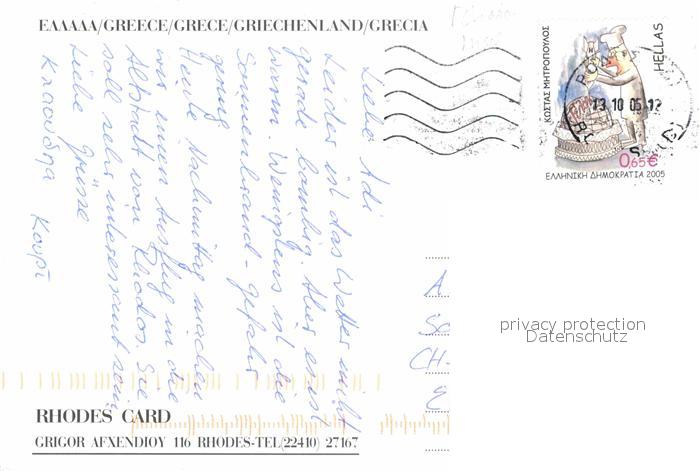 ΕΛΛΑΔΑ/GREECE/GRECE/GRIECHENLAND/GRECIA
Liebe Adi
Leider ist das Wetter nicht
gerade Aber es ist
warm. Wenigstens ist die
Sonnenbrand-gefahr
genug
Heute Nachmittag machen
wir einen Ausflug in die
Altstadt von Rhodos. Sie
soll sehr interessant sein.
Liebe Grüsse
Κλαουδια Κουρι
RHODES CARD
GRIGOR AFXENDIOY 116 RHODES-TEL(22410) 27167
ΚΩΣΤΑΣ ΜΗΤΡΟΠΟΥΛΟΣ
HELLAS
13 10 05-12
0,65€
ΕΛΛΗΝΙΚΗ ΔΗΜΟΚΡΑΤΙΑ 2005
A
CH-
privacy protection
Datenschutz